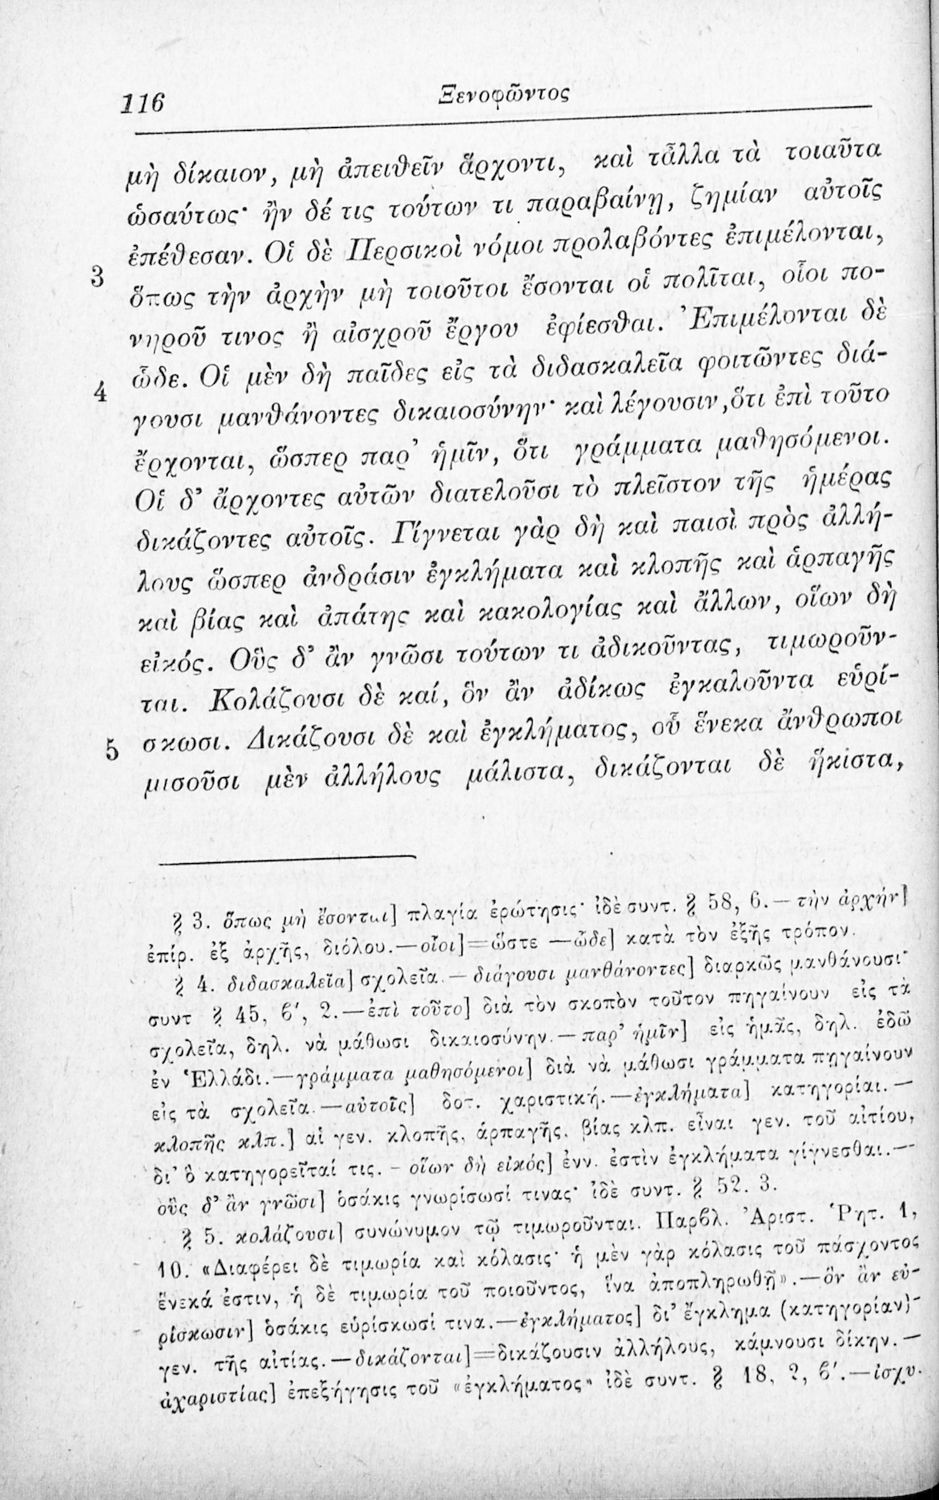 116
Ξενοφῶντος
μὴ δίκαιον, μὴ ἀπειθεῖν ἄρχοντι, καὶ τἆλλα τὰ τοιαῦτα
ὡσαύτως· ἢν δέ τις τούτων τι παραβαίνῃ, ζημίαν αὐτοῖς
ἐπέθεσαν. Οἱ δὲ Περσικοὶ νόμοι προλαβόντες ἐπιμέλονται,
3
ὅπως τὴν ἀρχὴν μὴ τοιοῦτοι ἔσονται οἱ πολῖται, οἷοι πο-
νηροῦ τινος ἢ αἰσχροῦ ἔργου ἐφίεσθαι. Ἐπιμέλονται δὲ
ὧδε. Οἱ μὲν δὴ παῖδες εἰς τὰ διδασκαλεῖα φοιτῶντες διά-
4
γουσι μανθάνοντες δικαιοσύνην· καὶ λέγουσιν, ὅτι ἐπὶ τοῦτο
ἔρχονται, ὥσπερ παρ' ἡμῖν, ὅτι γράμματα μαθησόμενοι.
Οἱ δ' ἄρχοντες αὐτῶν διατελοῦσι τὸ πλεῖστον τῆς ἡμέρας
δικάζοντες αὐτοῖς. Γίγνεται γὰρ δὴ καὶ παισὶ πρὸς ἀλλή-
λους ὥσπερ ἀνδράσιν ἐγκλήματα καὶ κλοπῆς καὶ ἁρπαγῆς
καὶ βίας καὶ ἀπάτης καὶ κακολογίας καὶ ἄλλων, οἵων δὴ
εἰκός. Οὓς δ' ἂν γνῶσι τούτων τι ἀδικοῦντας, τιμωροῦν-
ται. Κολάζουσι δὲ καί, ὃν ἂν ἀδίκως ἐγκαλοῦντα εὑρί-
5 σκωσι. Δικάζουσι δὲ καὶ ἐγκλήματος, οὗ ἕνεκα ἄνθρωποι
μισοῦσι μὲν ἀλλήλους μάλιστα, δικάζονται δὲ ἥκιστα,
§ 3. ὅπως μὴ ἔσονται] πλαγία ἐρώτησις· ἰδὲ συντ. § 58, 6.— τὴν ἀρχήν]
ἐπίρ. ἐξ ἀρχῆς, διόλου.—οἷοι]=ὥστε —ὧδε] κατὰ τὸν ἑξῆς τρόπον.
§ 4. διδασκαλεῖα] σχολεῖα.— διάγουσι μανθάνοντες] διαρκῶς μανθάνουσι·
συντ § 45, 6', 2.—ἐπὶ τοῦτο] διὰ τὸν σκοπὸν τοῦτον πηγαίνουν εἰς τὰ
σχολεῖα, δηλ. νὰ μάθωσι δικαιοσύνην.—παρ' ἡμῖν] εἰς ἡμᾶς, δηλ. ἐδῶ
ἐν Ἑλλάδι.—γράμματα μαθησόμενοι] διὰ νὰ μάθωσι γράμματα πηγαίνουν
εἰς τὰ σχολεῖα.—αὐτοῖς] δοτ. χαριστική.—ἐγκλήματα] κατηγορίαι.—
κλοπῆς κλπ.] αἱ γεν. κλοπῆς, ἁρπαγῆς, βίας κλπ. εἶναι γεν. τοῦ αἰτίου,
δι' ὃ κατηγορεῖταί τις.- οἵων δὴ εἰκός] ἐνν. ἐστὶν ἐγκλήματα γίγνεσθαι.—
οὓς δ' ἂν γνῶσι] ὁσάκις γνωρίσωσί τινας· ἰδὲ συντ. § 52. 3.
§ 5. κολάζουσι] συνώνυμον τῷ τιμωροῦνται. Παρβλ. Ἀριστ. Ῥητ. 1,
10. «Διαφέρει δὲ τιμωρία καὶ κόλασις· ἡ μὲν γὰρ κόλασις τοῦ πάσχοντος
ἕνεκά ἐστιν, ἡ δὲ τιμωρία τοῦ ποιοῦντος, ἵνα ἀποπληρωθῇ».—ὃν ἂν εὑ-
ρίσκωσιν] ὁσάκις εὑρίσκωσί τινα.—ἐγκλήματος] δι' ἔγκλημα (κατηγορίαν)·
γεν. τῆς αἰτίας.—δικάζονται]=δικάζουσιν ἀλλήλους, κάμνουσι δίκην.—
ἀχαριστίας] ἐπεξήγησις τοῦ «ἐγκλήματος» ἰδὲ συντ. § 18, 2, 6'.—ἰσχυ-